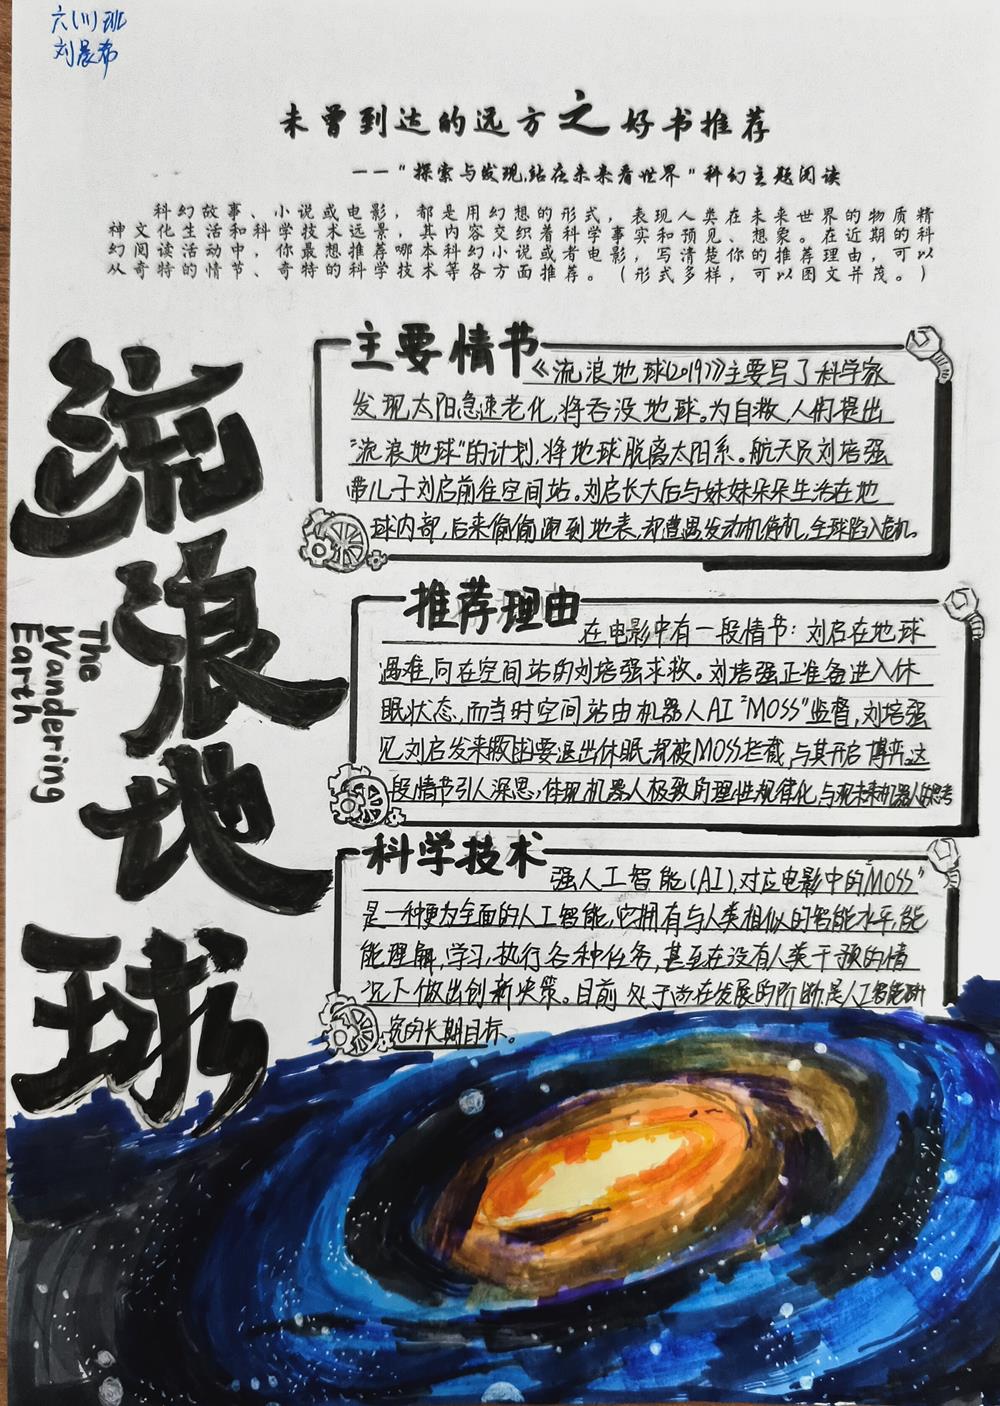 六(11)班
刘晨希
未曾到达的远方之好书推荐
——"探索与发现,站在未来看世界"科幻主题阅读
科幻故事、小说或电影，都是用幻想的形式，表现人类在未来世界的物质精
神文化生活和科学技术远景，其内容交织着科学事实和预见、想象。在近期的科
幻阅读活动中，你最想推荐哪本科幻小说或者电影，写清楚你的推荐理由，可以
从奇特的情节、奇特的科学技术等各方面推荐。（形式多样，可以图文并茂。）
流浪地球
The
Wandering
Earth
主要情节
《流浪地球(2019)》主要写了科学家
发现太阳急速老化,将吞没地球。为自救,人们提出
"流浪地球"的计划,将地球脱离太阳系。航天员刘培强
带儿子刘启前往空间站。刘启长大后与妹妹朵朵生活在地
球内部,后来偷偷跑到地表,却遭遇发动机停机,全球陷入危机。
推荐理由
在电影中有一段情节：刘启在地球
遇难,向在空间站的刘培强求救。刘培强正准备进入休
眠状态,而当时空间站由机器人AI"MOSS"监督,刘培强
见刘启发来救困要退出休眠,却被MOSS拦截,与其开启博弈。这
段情节引人深思,体现机器人极致的理性规律化,与对未来机器人的思考
科学技术
强人工智能(AI),对应电影中的"MOSS"
是一种更为全面的人工智能,它拥有与人类相似的智能水平,能
能理解,学习,执行各种任务,甚至在没有人类干预的情
况下做出创新决策。目前处于尚在发展的阶断,是人工智能研
究的长期目标。